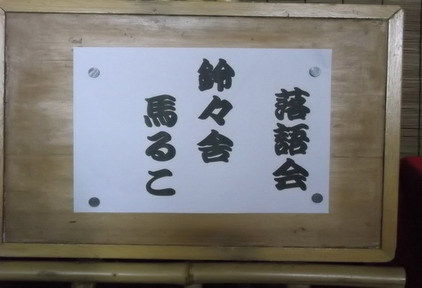 落語会
鈴々舎
馬るこ